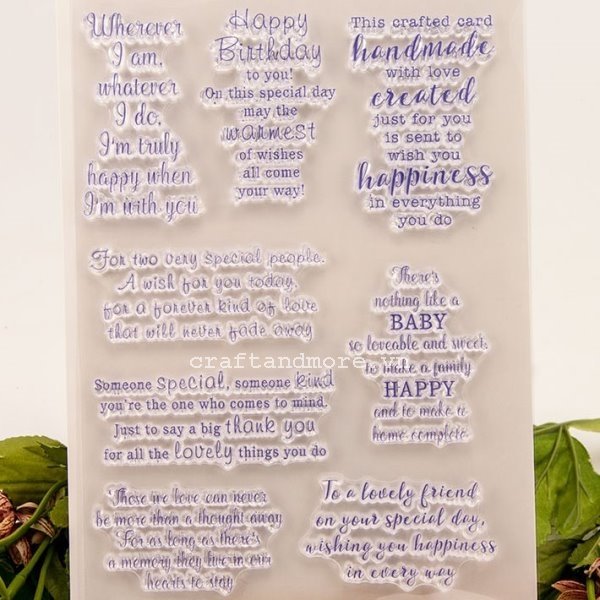 Wherever
I am,
whatever
I do,
I'm truly
happy when
I'm with you
Happy
Birthday
to you!
On this special day
may the
warmest
of wishes
all come
your way!
This crafted card
handmade
with love
created
just for you
is sent to
wish you
happiness
in everything
you do
For two very special people.
A wish for you today,
for a forever kind of love
that will never fade away
There's
nothing like a
BABY
so loveable and sweet,
to make a family
HAPPY
and to make a
home complete
craftandmore.vn
Someone special, someone kind
you're the one who comes to mind.
Just to say a big thank you
for all the lovely things you do
Those we love can never
be more than a thought away
For as long as there's
a memory they live in our
hearts to stay
To a lovely friend
on your special day,
wishing you happiness
in every way